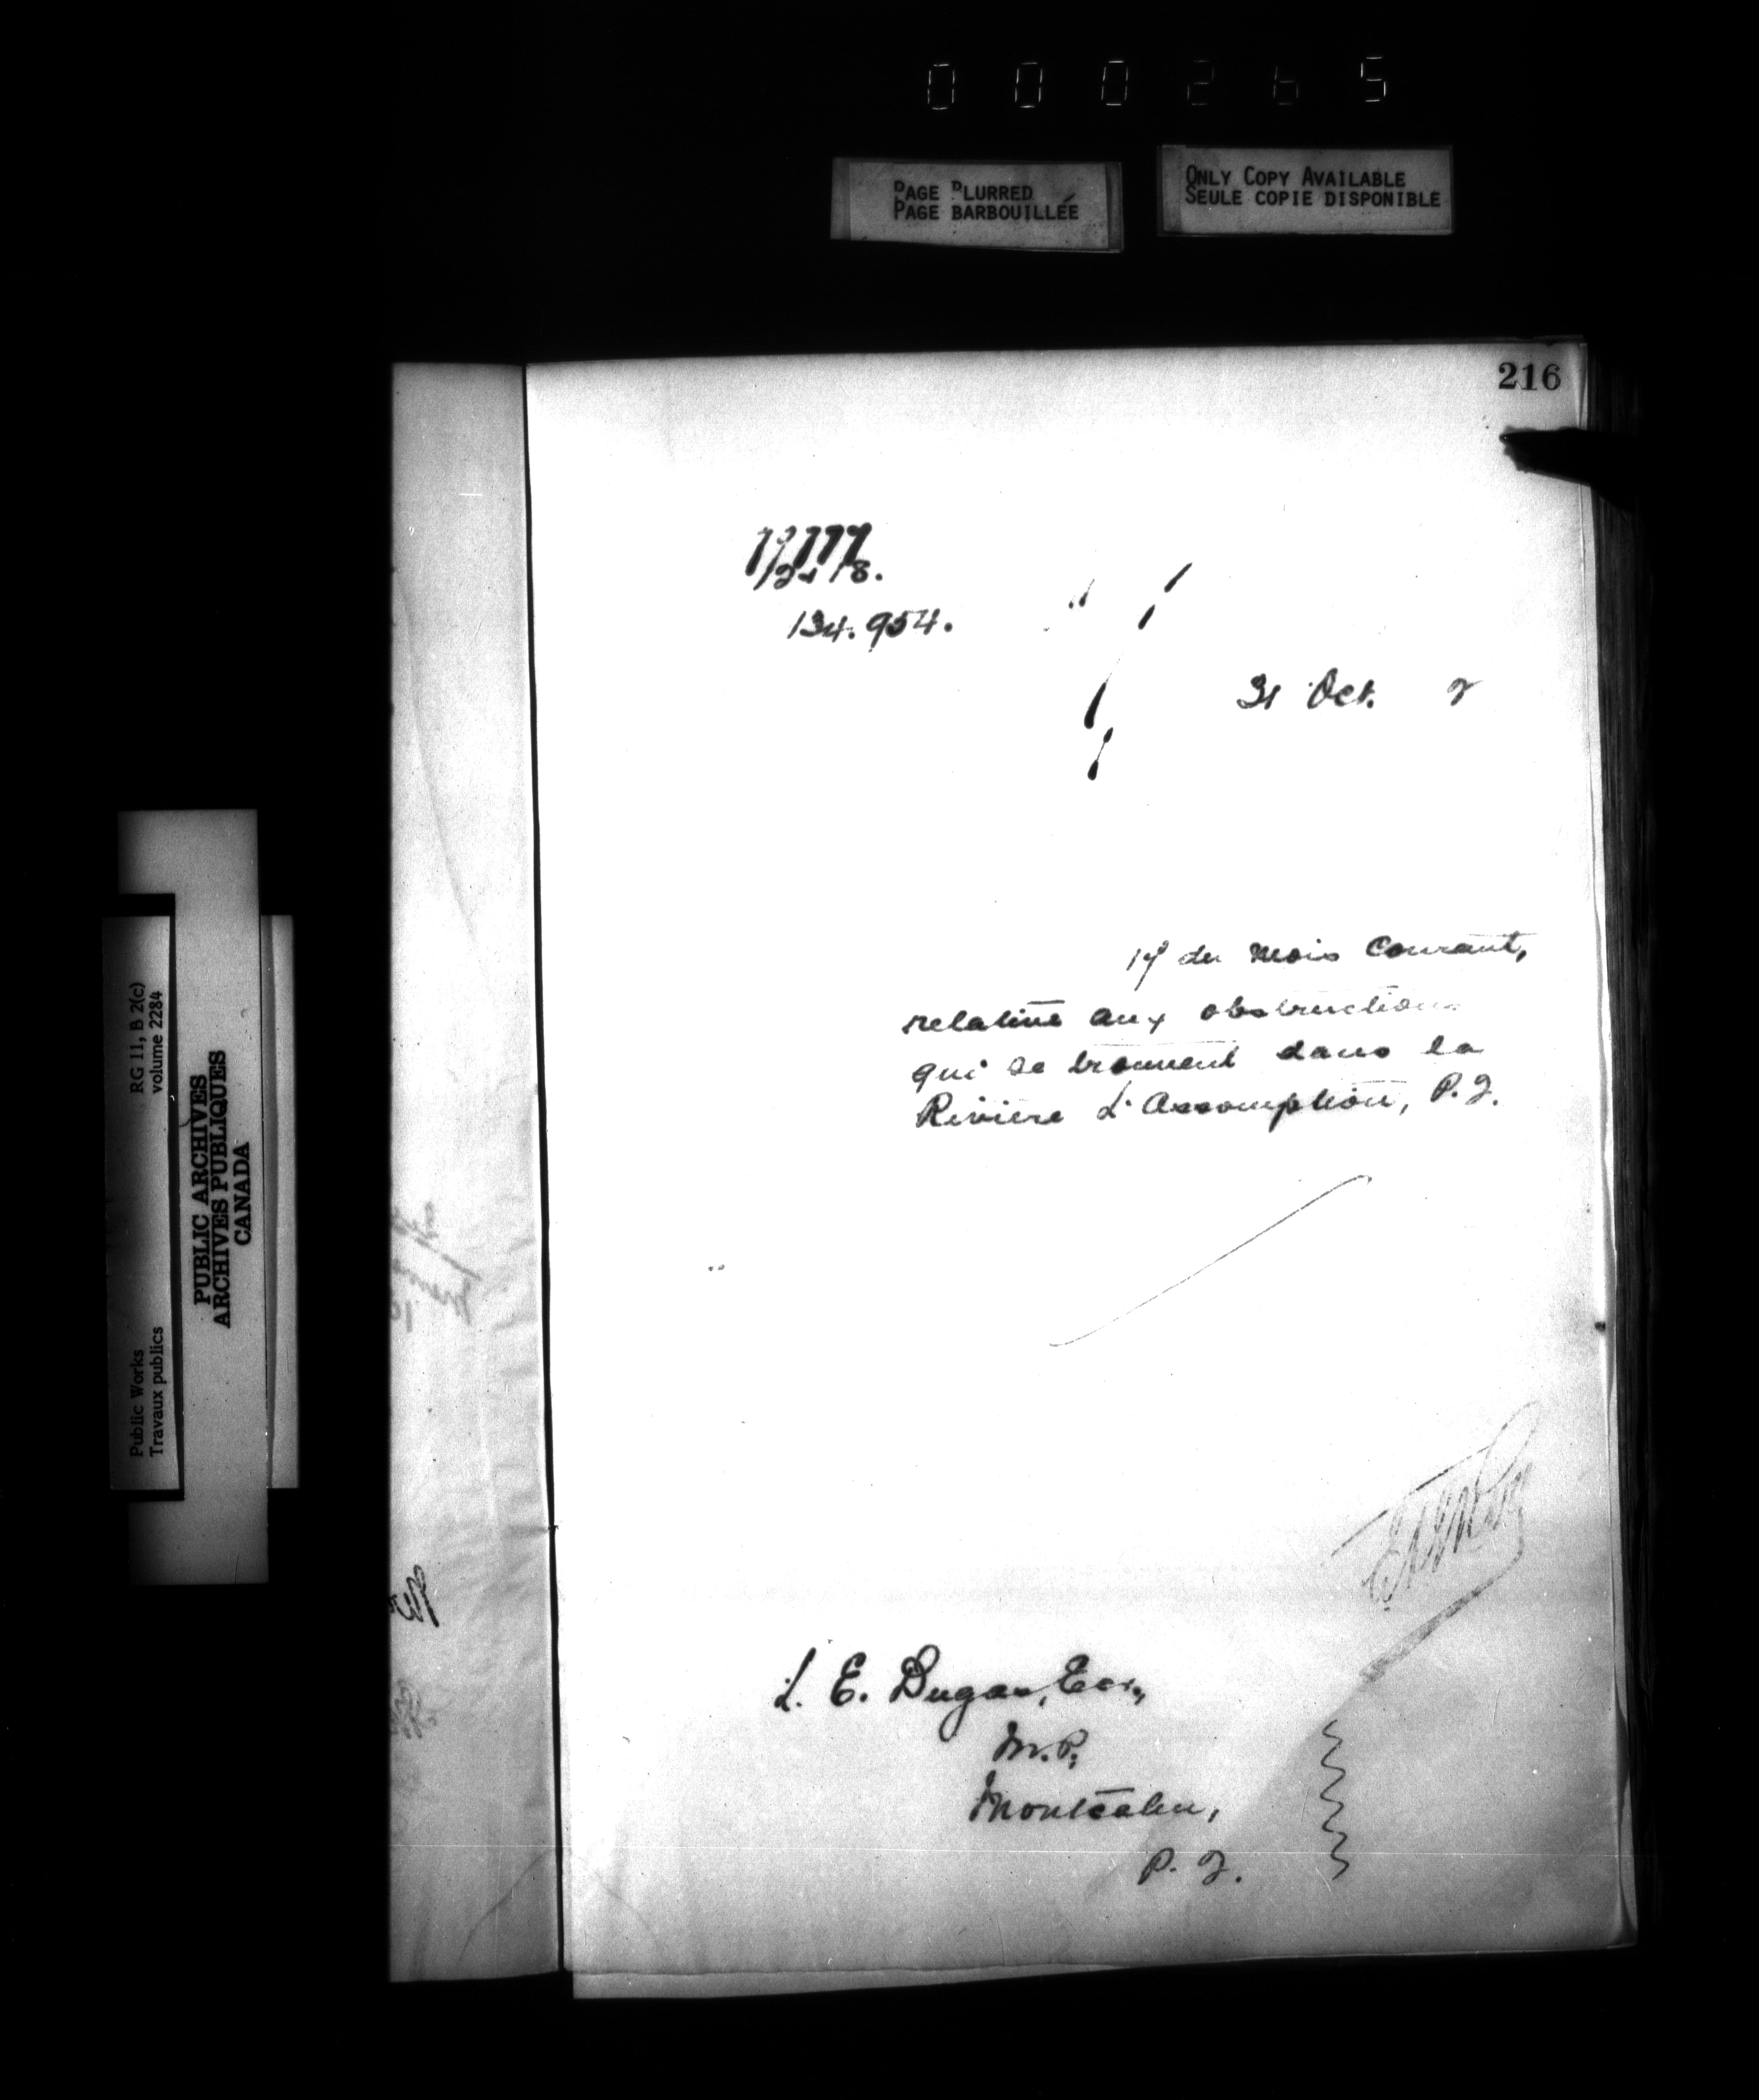 000265
PAGE BLURRED
PAGE BARBOUILLÉE
ONLY COPY AVAILABLE
SEULE COPIE DISPONIBLE
216
134.954.
31 Oct. 2
du mois Courant,
relative aux obstructions
qui se trouvent dans la
Rivière L'Assomption, P.Q.
L. E. Dugas, Ecr.,
M.P.
Montcalm,
P. Q.
RG 11, B 2(c)
volume 2284
PUBLIC ARCHIVES
ARCHIVES PUBLIQUES
CANADA
Public Works
Travaux publics